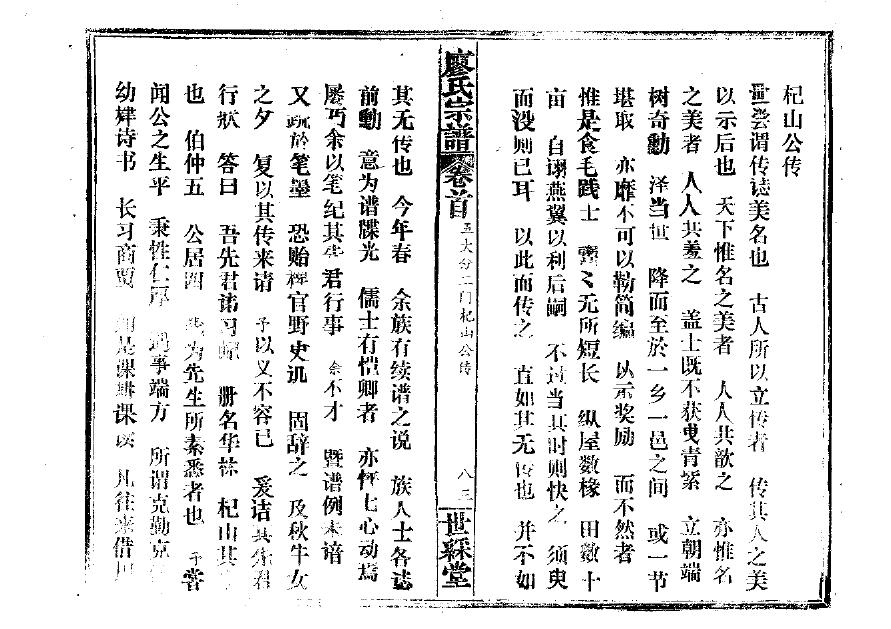 杞山公传
世尝谓传志美名也　古人所以立传者　传其人之美
以示后也　天下惟名之美者　人人共歆之　亦惟名
之美者　人人共羞之　盖士既不获曳青紫　立朝端
树奇勳　泽当世　降而至於一乡一邑之间　或一节
堪取　亦靡不可以勒简编　以示奖励　而不然者
惟是食毛践土　 〻无所短长　纵屋数椽　田数十
亩　自谓燕翼以利后嗣　不过当其时则快之　须臾
而没则已耳　以此而传之　直如其无传也　并不如
廖氏宗谱　卷首　五大分二门杞山公传　八三　世綵堂
其无传也　今年春　余族有续谱之说　族人士各志
前勳　意为谱牒光　儒士有恺卿者　亦怦七心动焉
屡丐余以笔纪其先君行事　余不才　暨谱例未谙
又疏於笔墨　恐贻稗官野史讥　固辞之　及秋牛女
之夕　复以其传来请　予以义不容已　爰诘其先君
行状　答曰　吾先君讳习 　册名华 　杞山其
也　伯仲五　公居四　 为先生所素悉者也　予尝
闻公之生平　秉性仁厚　遇事端方　所谓克勤克
幼肄诗书　长习商贾　 是课耕课读　凡往来借